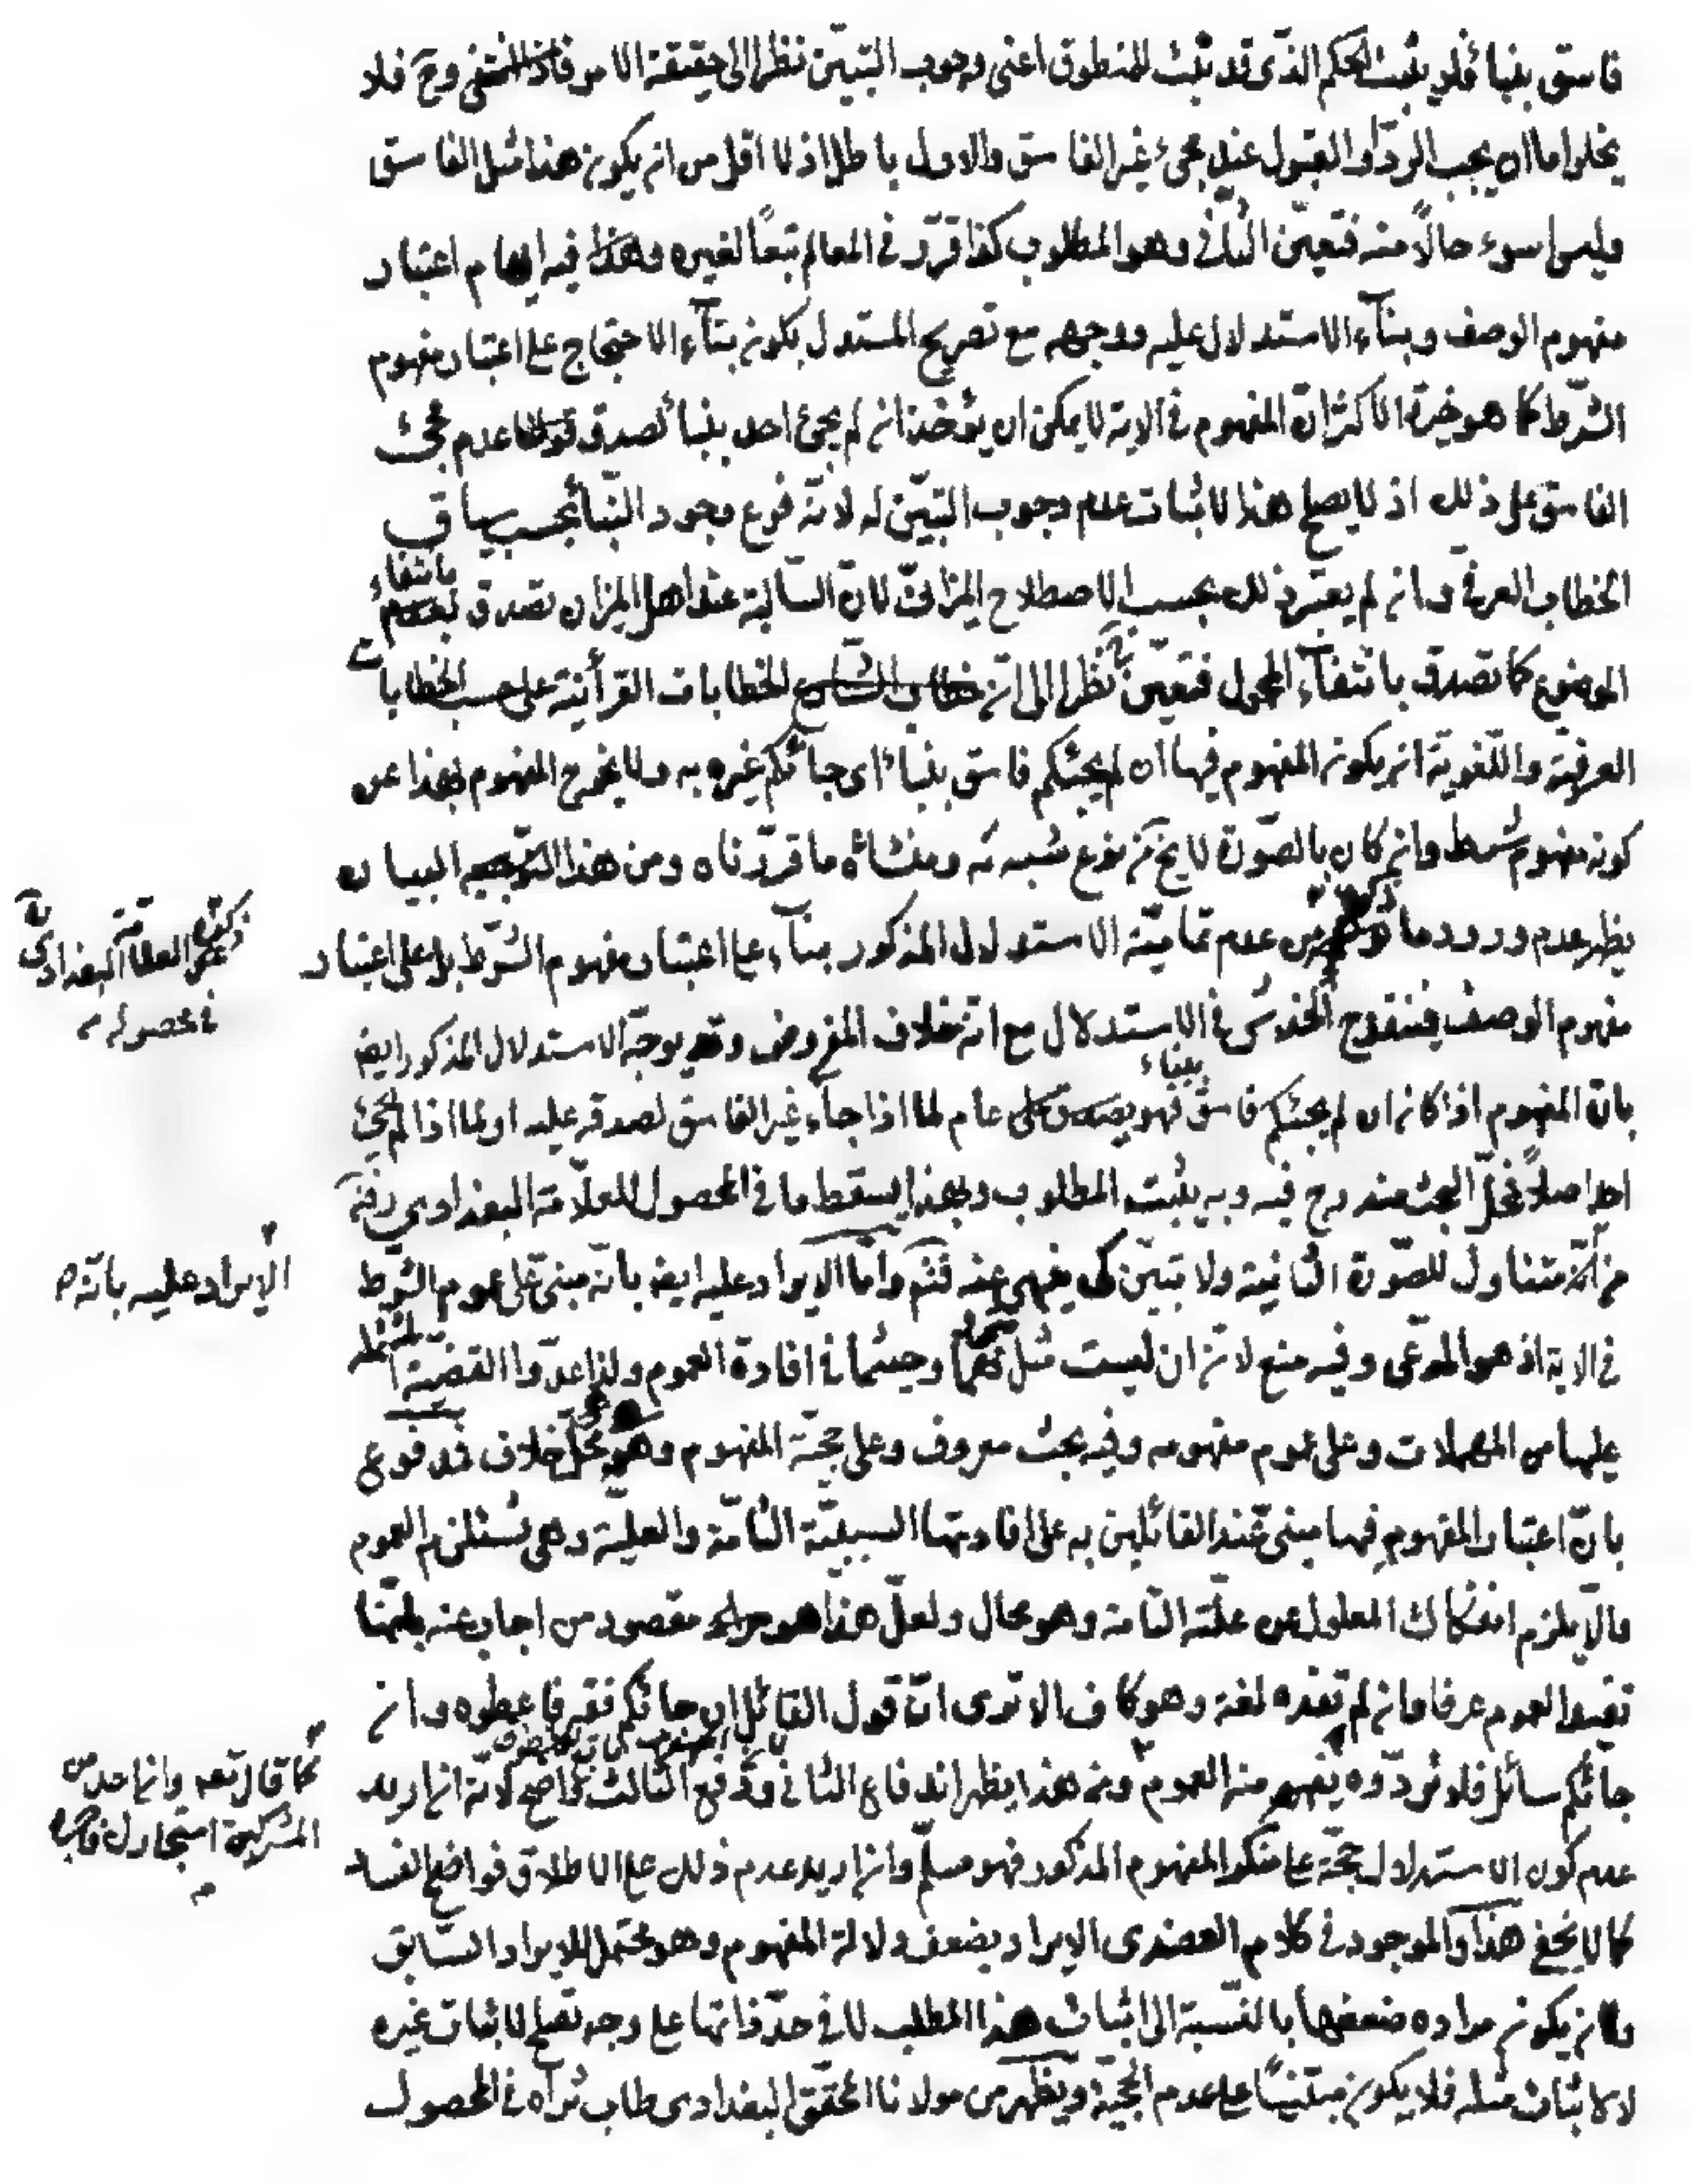 فاسق بنبأ فلو يثبت الحكم الذى قد ثبت للمنطوق اعنى وجوب التبيّن نظرا الى حقيقة الامر فاذا انتفى وح فلا
يخلوا ما ان يجب الردّ او القبول عند مجىء غير الفاسق والاول باطل اذ لا اقل من ان يكون هذا مثل الفاسق
وليس اسوء حالًا منه فتعيّن الثانى وهو المطلوب كذا قرّر فى المعالم تبعًا لغيره وهذا فيه ايهام اعتبار
مفهوم الوصف وبنآء الاستدلال عليه ووجهه مع تصريح المستدل بكون بنآء الاحتجاج على اعتبار مفهوم
الشرط كما هو خيرة الاكثر ان المفهوم فى الاية لا يمكن ان يؤخذ ان لم يجئ احد بنبأ لصدق عدم مجىء
الفاسق على ذلك اذ لا يصلح هذا لاثبات عدم وجوب التبيّن له لانّه فرع وجود النّبأ بحسب سياق
الخطاب العرفى وان لم يعتبر ذلك بحسب الاصطلاح الميزانى لان السالبة عند اهل الميزان تصدق بانتفاء
الموضوع كما تصدق بانتفآء المحمول فتعيّن ح نظرا الى ان الخطابات القرأنية على حسب الخطابات
العرفية واللغوية ان يكون المفهوم فيها ان لم يجئكم فاسق بنباء اى جائكم غيره به ولا يخرج المفهوم بهذا عن
كونه مفهوم شرط وان كان بالصّورة لا يخ من نوع شبه له ومنشائه ما قرّرناه ومن هذا البيان
يظهر عدم ورود ما ذكره من عدم تماميّة الاستدلال المذكور بنآء على اعتبار مفهوم الشرط بل على اعتبار
ذكره العلامة البغدادى
فى محصوله
مفهوم الوصف فينقدح الخدش فى الاستدلال مع انّه خلاف المفروض وقد يوجّه الاستدلال المذكور ايض
بان المفهوم اذا كان ان لم يجئكم فاسق بنباء فهو عام لما اذا جآء غير الفاسق لصدقه عليه او لما اذا لم يجئ
احد اصلًا فمحلّ البحث مندرج فيه وبه يثبت المطلوب وبهذا يسقط ما فى المحصول للعلّامة البغدادى
من انّه متناول للصّورة الثانية ولا تبيّن كى ينهى عنه فتم وامّا الايراد عليه ايض بانه مبنى على عموم الشرط
الايراد عليه بانّه
فى الاية اذ هو المدّعى وفيه منع لان ان ليست مثل كلما وحيثما فى افادة العموم ولذا عدّوا القضيّة المشتملة
عليها من المهملات وعلى عموم مفهومه وفيه بحث معروف وعلى حجّة المفهوم وهو محلّ خلاف فمدفوع
بانّ اعتبار المفهوم فيها مبنى عند القائلين به على افادتها السببيّة التّامّة والعليّة وهى تستلزم العموم
والّا يلزم انفكاك المعلول عن علّته التّامة وهو محال ولعلّ هذا هو مقصود من اجاب عنه بانّها
تفيد العموم عرفا وان لم تفده لغة وهو كاف الا ترى انّ قول القائل ان جائكم فقير فاعطوه وان
جائكم سائل فلا تردّوه يفهم منه العموم ومن هذا يظهر اندفاع الثانى ودفع الثالث واضح لانّه ان اريد
كما قال تعه وان احد من
المشركين استجارك فاجره
عدم كون الاستدلال حجّة على منكر المفهوم المذكور فهو مسلّم وان اريد عدم ذلك على الاطلاق فواضح الفساد
كما لا يخفى هذا والموجود فى كلام العضدى الايراد بضعف دلالة المفهوم وهو محتمل للايراد السّابق
وان يكون مراده ضعفها بالنسبة الى اثبات هذا المطلب لا فى حدّ ذاتها على وجه تصلح لاثبات غيره
لا اثبات مثله فلا يكون مبتنيًا على عدم الحجية ويظهر من مولانا المحقق البغدادى طاب ثراه فى المحصول